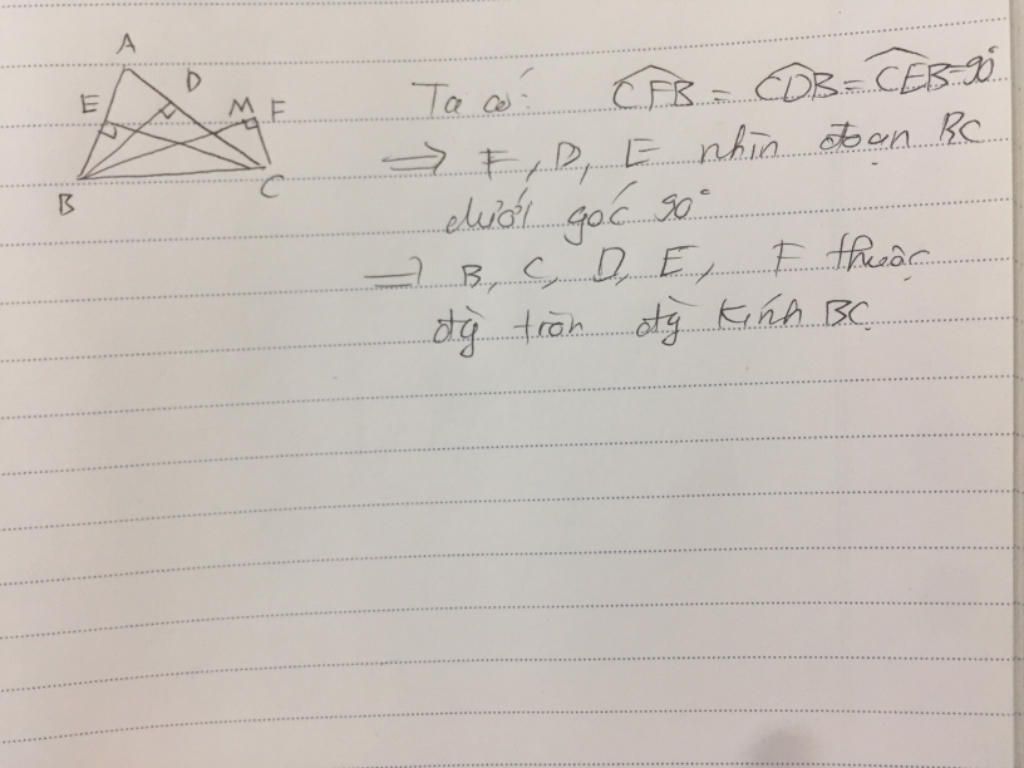 A
D
E
M F
B
C
Ta có: \widehat{CFB} = \widehat{CDB} = \widehat{CEB} = 90°
=> F, D, E nhìn đoạn BC
dưới góc 90°
=> B, C, D, E, F thuộc
đg̀ tròn đg̀ kính BC